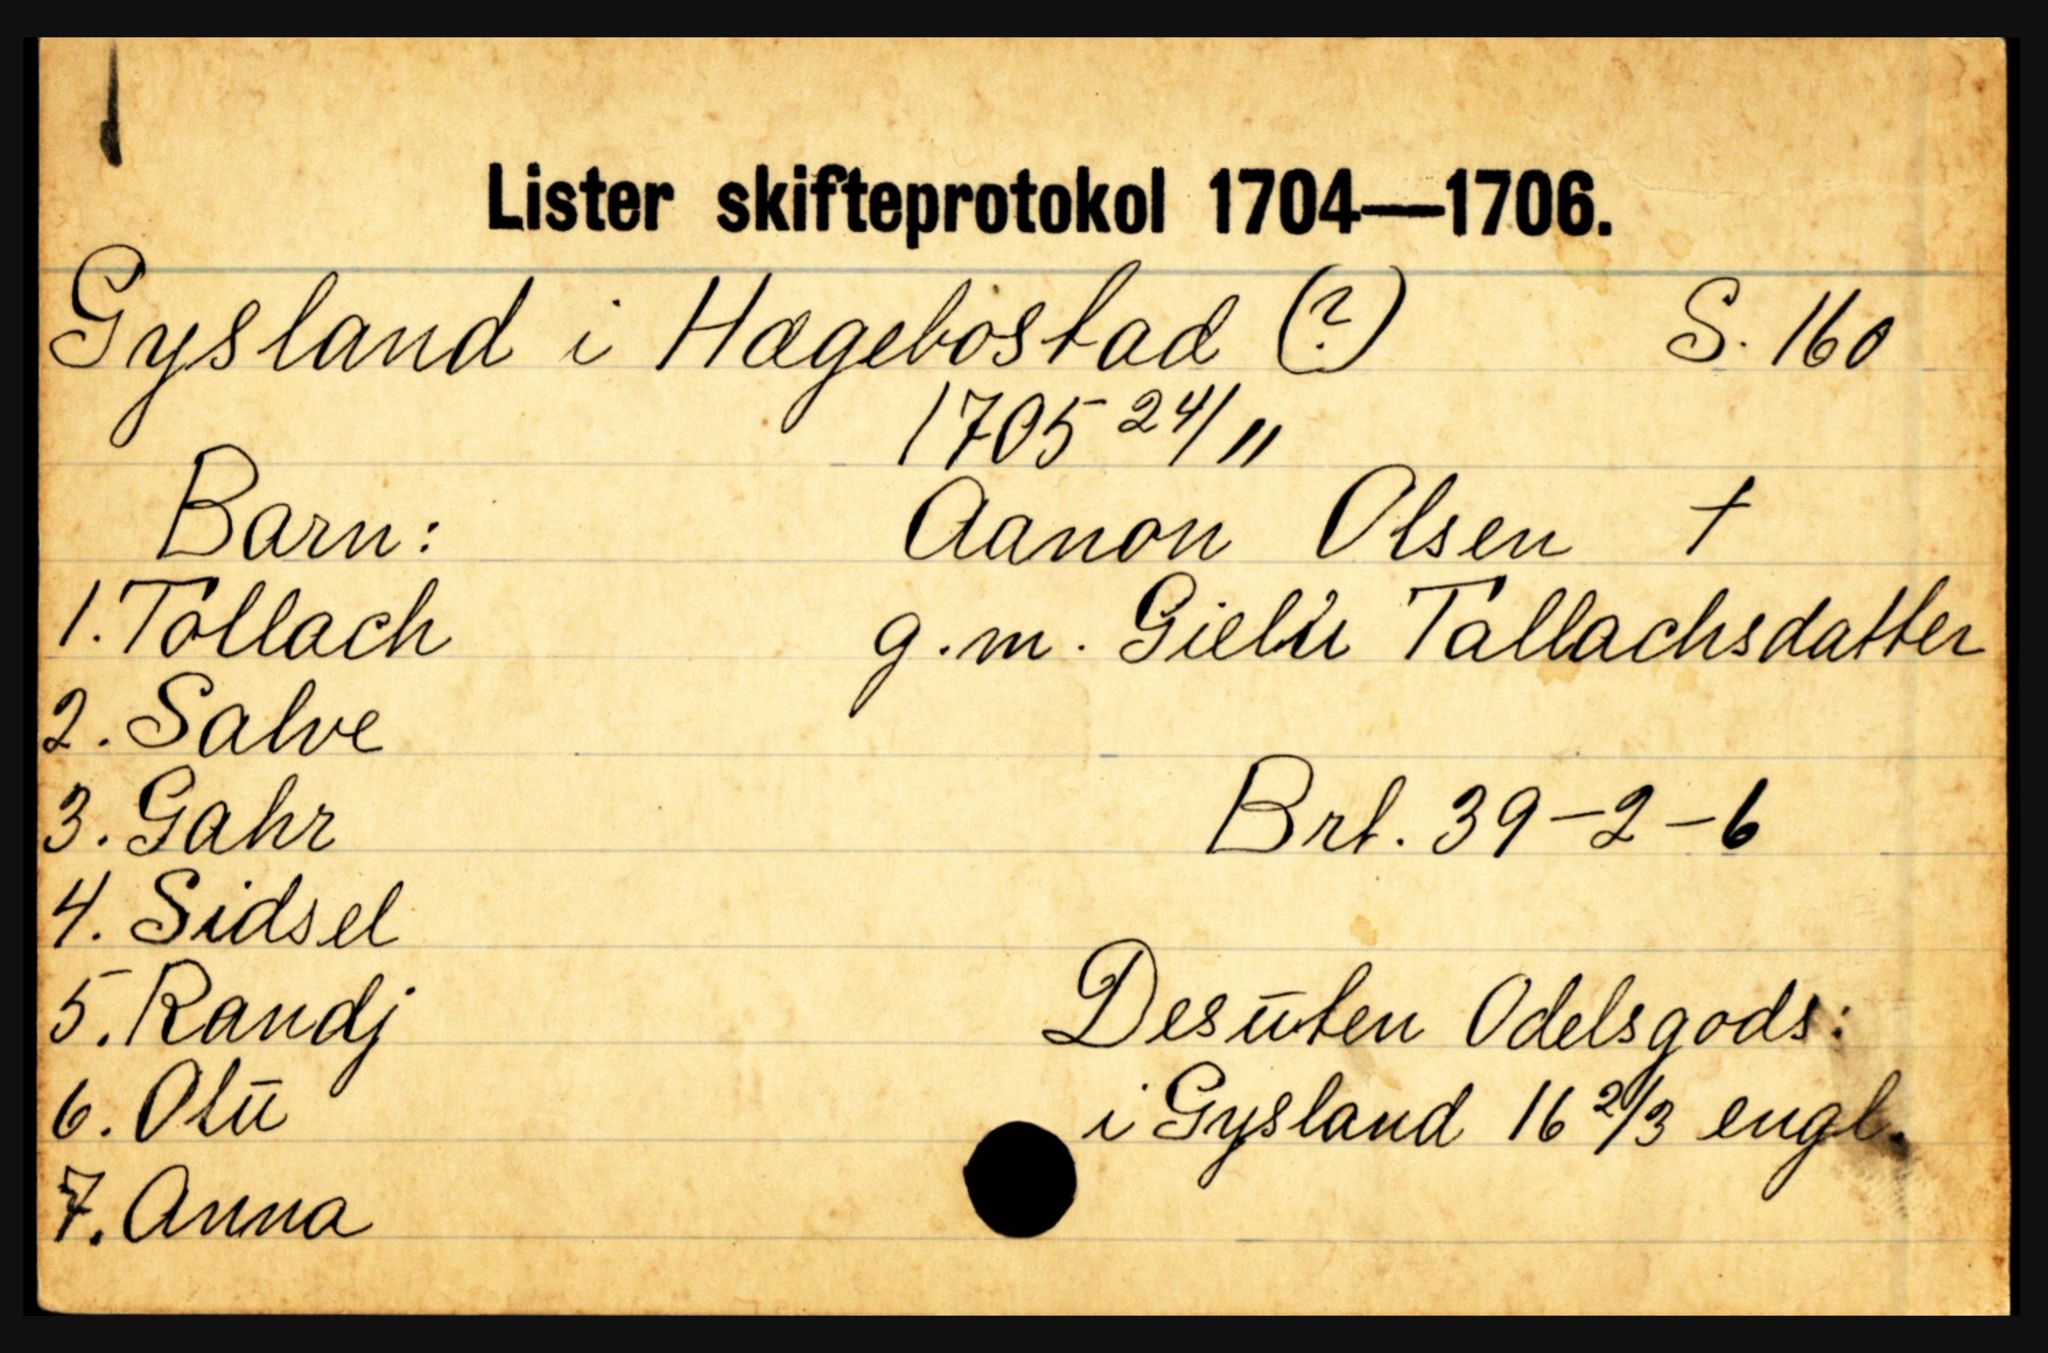 Lister skifteprotokol 1704—1706.
Gysland i Hægebostad (?) S. 160
1705 24/11
Barn: Aanon Olsen †
1. Tollach g.m. Gielu Tallachsdatter
2. Salve
3. Gahr Brt. 39-2-6
4. Sidsel
5. Randj Desuten Odelsgods:
6. Olu i Gysland 16 2/3 engl.
7. Anna